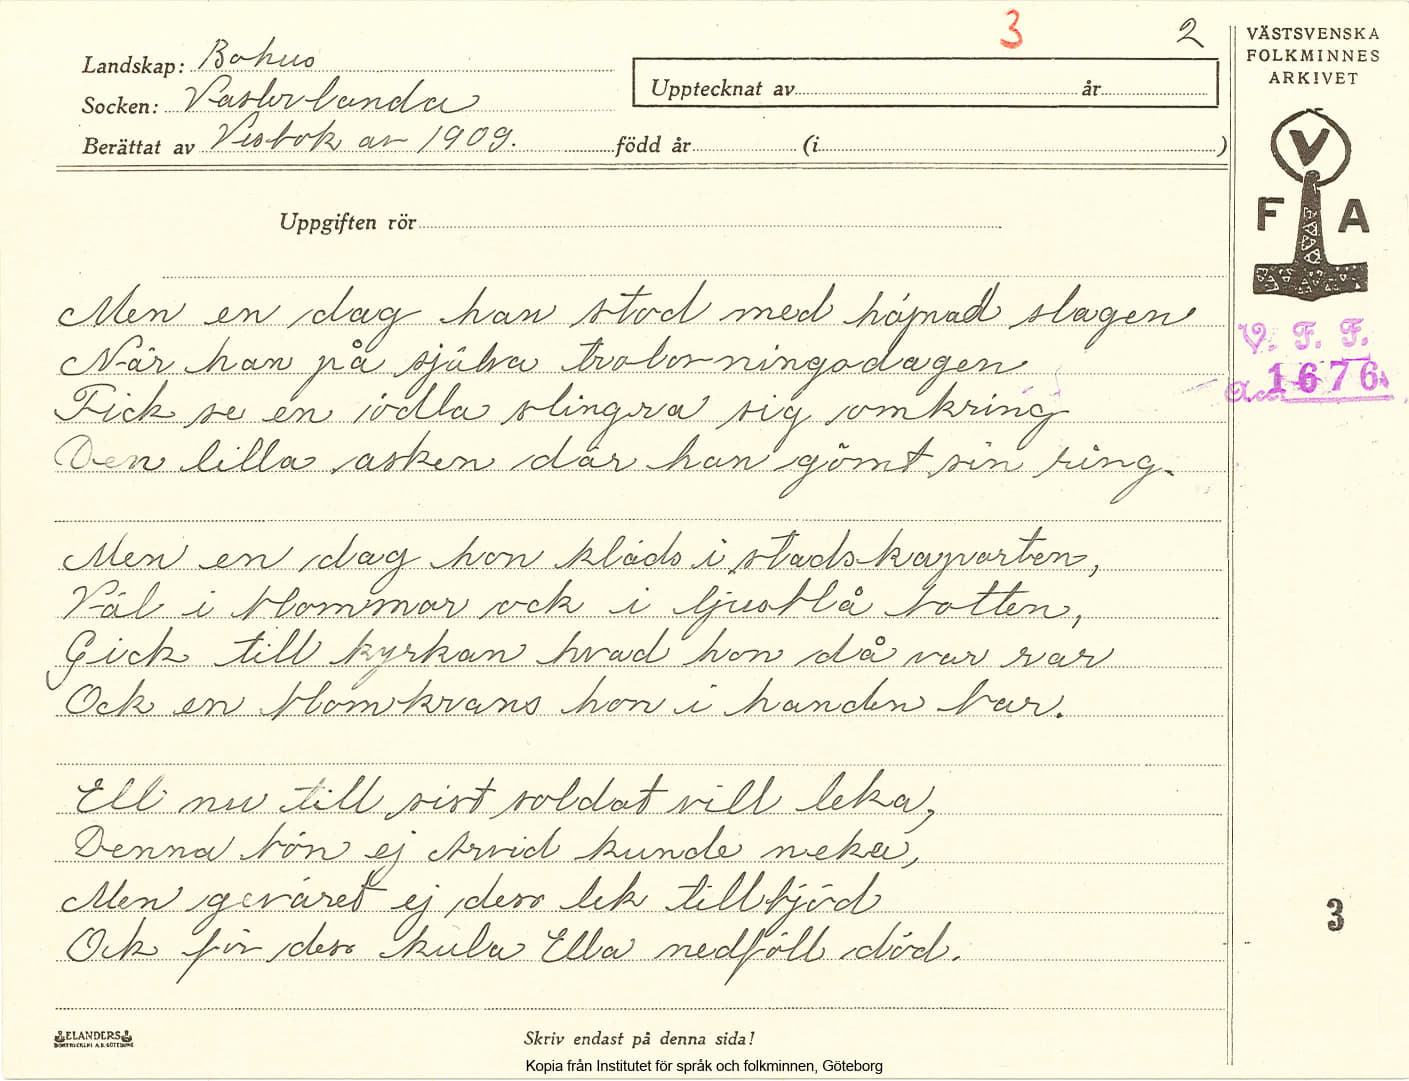 3
2
VÄSTSVENSKA
FOLKMINNES
ARKIVET
Landskap: Bohus
Socken: Vasterlanda
Berättat av Visbok av 1909. född år (i )
Upptecknat av år
V
F A
Uppgiften rör
V. F. F.
Acc 1676.
Men en dag han stod med häpnad slagen
När han på själva trolovningsdagen
Fick se en ödla slingra sig omkring
Den lilla asken där han gömt sin ring.
Men en dag hon kläds i stadskaporten,
Väl i blommor ock i ljusblå botten,
Gick till kyrkan hvad hon då var rar
Ock en blomkrans hon i handen bar.
Ell nu till sist soldat vill leka,
Denna bön ej Arvid kunde neka,
Men geväret ej dess lek tillbjöd
Ock för dess kula Ella nedföll död.
3
ELANDERS
BOKTRYCKERI A.B. GÖTEBORG
Skriv endast på denna sida!
Kopia från Institutet för språk och folkminnen, Göteborg